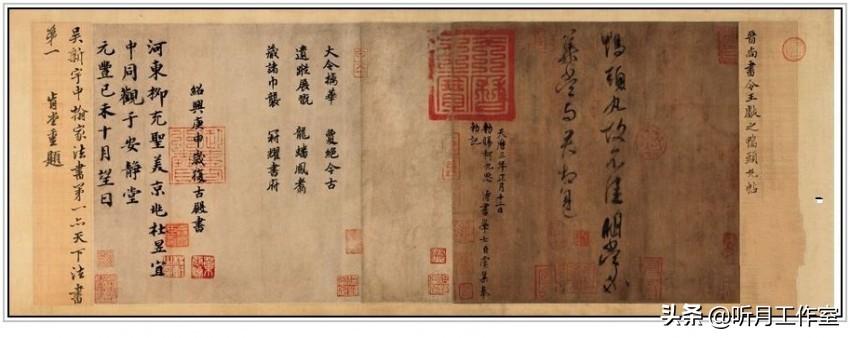 晉尚書令王獻之鴨頭丸帖
鴨頭丸故不佳明當必
集當與君相見
天曆三年正月十二日
勑賜柯九思 侍書學士臣虞集奉
勑記
天曆之寶
大令摛華 夐絕今古
遺蹤展翫 龍蟠鳳翥
藏諸巾襲 冠耀書府
紹興庚申歲復古殿書
河東柳充聖美京兆杜昱宜
中同觀于安靜堂
元豐己未十月望日
吳新宇中翰家法書第一亦天下法書
第一 肯堂重題
头条 @听月工作室